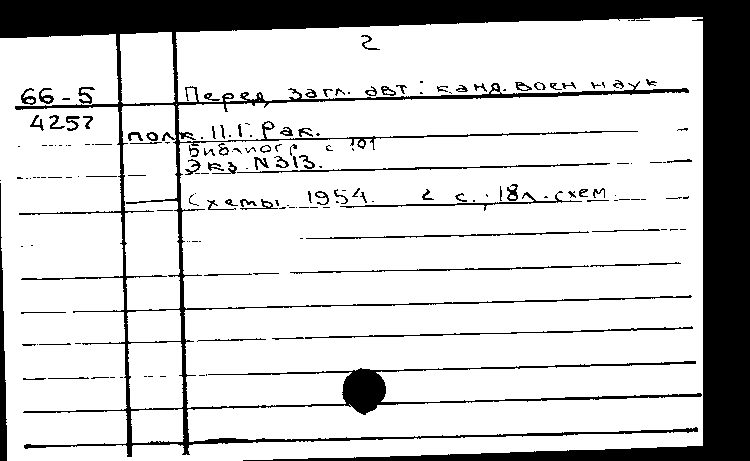 2
66-5 Перед загл. авт: канд. воен наук
4257
полк. П.Г. Рак.
Библиогр с 101
Экз. N313.
Схемы. 1954. 2 с.; 18л. схем.